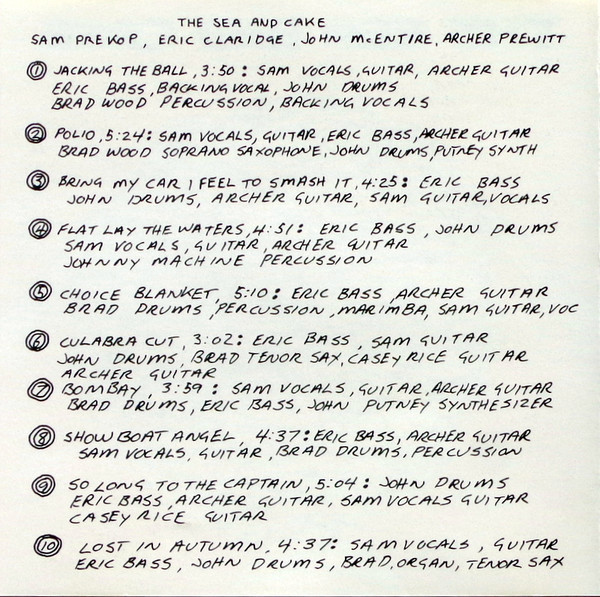 THE SEA AND CAKE
SAM PREKOP, ERIC CLARIDGE, JOHN McENTIRE, ARCHER PREWITT
① JACKING THE BALL, 3:50: SAM VOCALS, GUITAR, ARCHER GUITAR
ERIC BASS, BACKING VOCAL, JOHN DRUMS
BRAD WOOD PERCUSSION, BACKING VOCALS
② POLIO, 5:24: SAM VOCALS, GUITAR, ERIC BASS, ARCHER GUITAR
BRAD WOOD SOPRANO SAXOPHONE, JOHN DRUMS, PUTNEY SYNTH
③ BRING MY CAR I FEEL TO SMASH IT, 4:25: ERIC BASS
JOHN DRUMS, ARCHER GUITAR, SAM GUITAR, VOCALS
④ FLAT LAY THE WATERS, 4:51: ERIC BASS, JOHN DRUMS
SAM VOCALS, GUITAR, ARCHER GUITAR
JOHNNY MACHINE PERCUSSION
⑤ CHOICE BLANKET, 5:10: ERIC BASS, ARCHER GUITAR
BRAD DRUMS, PERCUSSION, MARIMBA, SAM GUITAR, VOC
⑥ CULABRA CUT, 3:02: ERIC BASS, SAM GUITAR
JOHN DRUMS, BRAD TENOR SAX, CASEY RICE GUITAR
ARCHER GUITAR
⑦ BOMBAY, 3:59: SAM VOCALS, GUITAR, ARCHER GUITAR
BRAD DRUMS, ERIC BASS, JOHN PUTNEY SYNTHESIZER
⑧ SHOWBOAT ANGEL, 4:37: ERIC BASS, ARCHER GUITAR
SAM VOCALS, GUITAR, BRAD DRUMS, PERCUSSION
⑨ SO LONG TO THE CAPTAIN, 5:04: JOHN DRUMS
ERIC BASS, ARCHER GUITAR, SAM VOCALS GUITAR
CASEY RICE GUITAR
⑩ LOST IN AUTUMN, 4:37: SAM VOCALS, GUITAR
ERIC BASS, JOHN DRUMS, BRAD, ORGAN, TENOR SAX